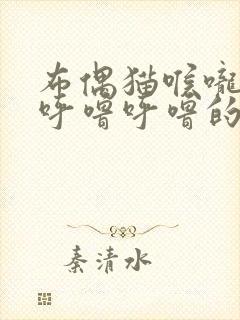 布偶猫喉咙
呼噜呼噜的
秦清水